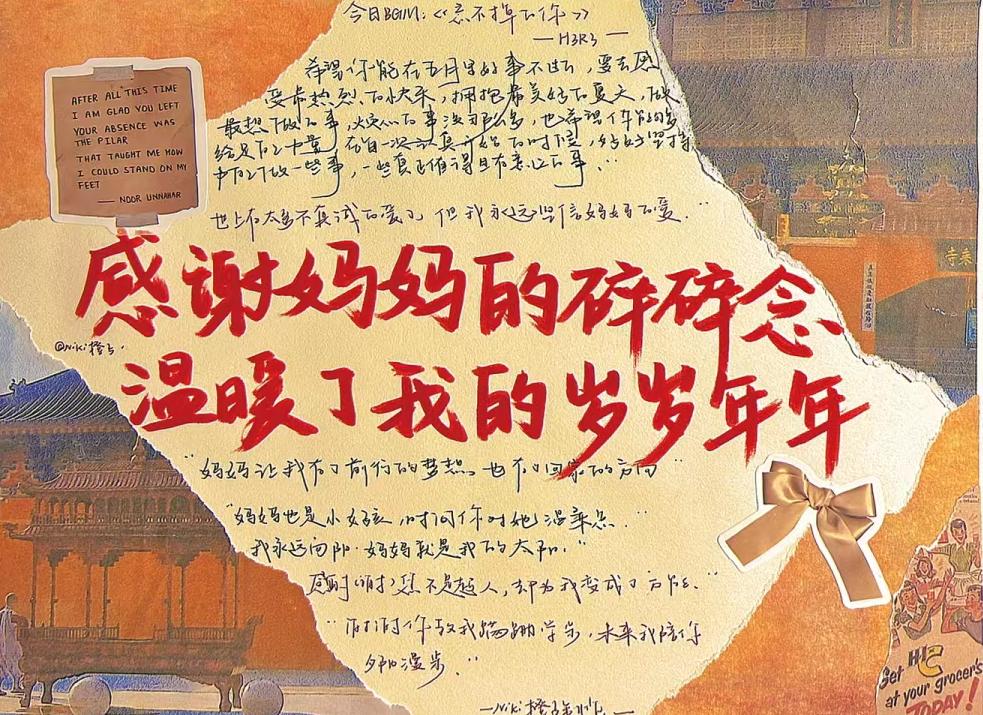 今日BGM:《忘不掉的你》
—H3R3—
希望你能在五月里好事不断,要去感
受最热烈的快乐,拥抱最美好的夏天,做
最想做的事,烦心的事没那么多,也希望你能够
给足自己力量,在每一次认真开始的时候,好好坚持
为自己做一些事,一些真正值得且有意义的事...
世上有太多不真诚的爱了,但我永远坚信妈妈的爱."
AFTER ALL THIS TIME
I AM GLAD YOU LEFT
YOUR ABSENCE WAS
THE PILAR
THAT TAUGHT ME HOW
I COULD STAND ON MY
FEET
— NOOR UNNAHAR
感谢妈妈的碎碎念
@Niki橙与.
温暖了我的岁岁年年
"妈妈让我有了前行的梦想,也有了回家的方向"
"妈妈也是小女孩,时间你对她温柔点."
我永远向阳.妈妈就是我的太阳."
感谢您不是超人,却为我变成了万能."
"小时候你教我蹒跚学步,未来我陪你
夕阳漫步."
—Niki橙
来寺
Get Hi-C
at your grocer's
TODAY!